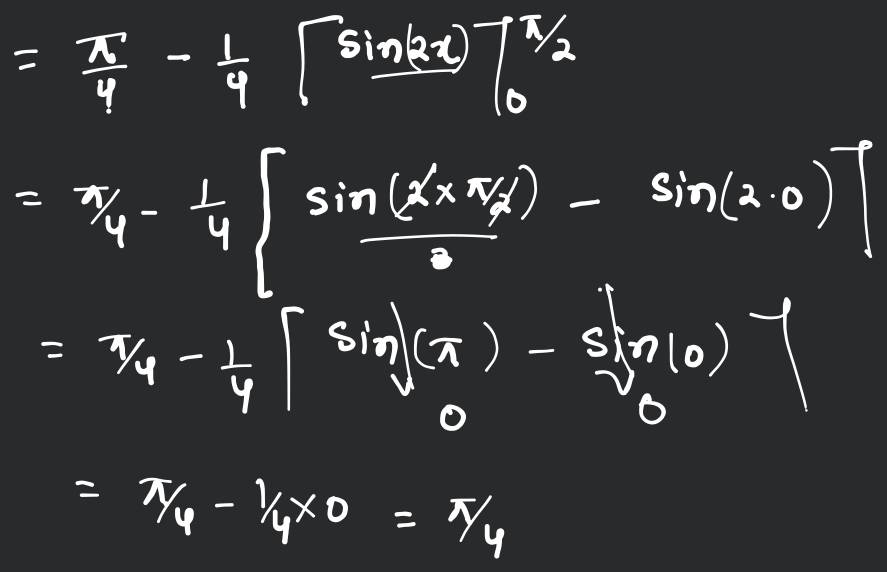 = π/4 - 1/4 [sin(2x)]₀^π/2
= π/4 - 1/4 [sin(2×π/2) - sin(2·0)]
= π/4 - 1/4 [sin(π) - sin(0)]
0 0
= π/4 - 1/4×0 = π/4